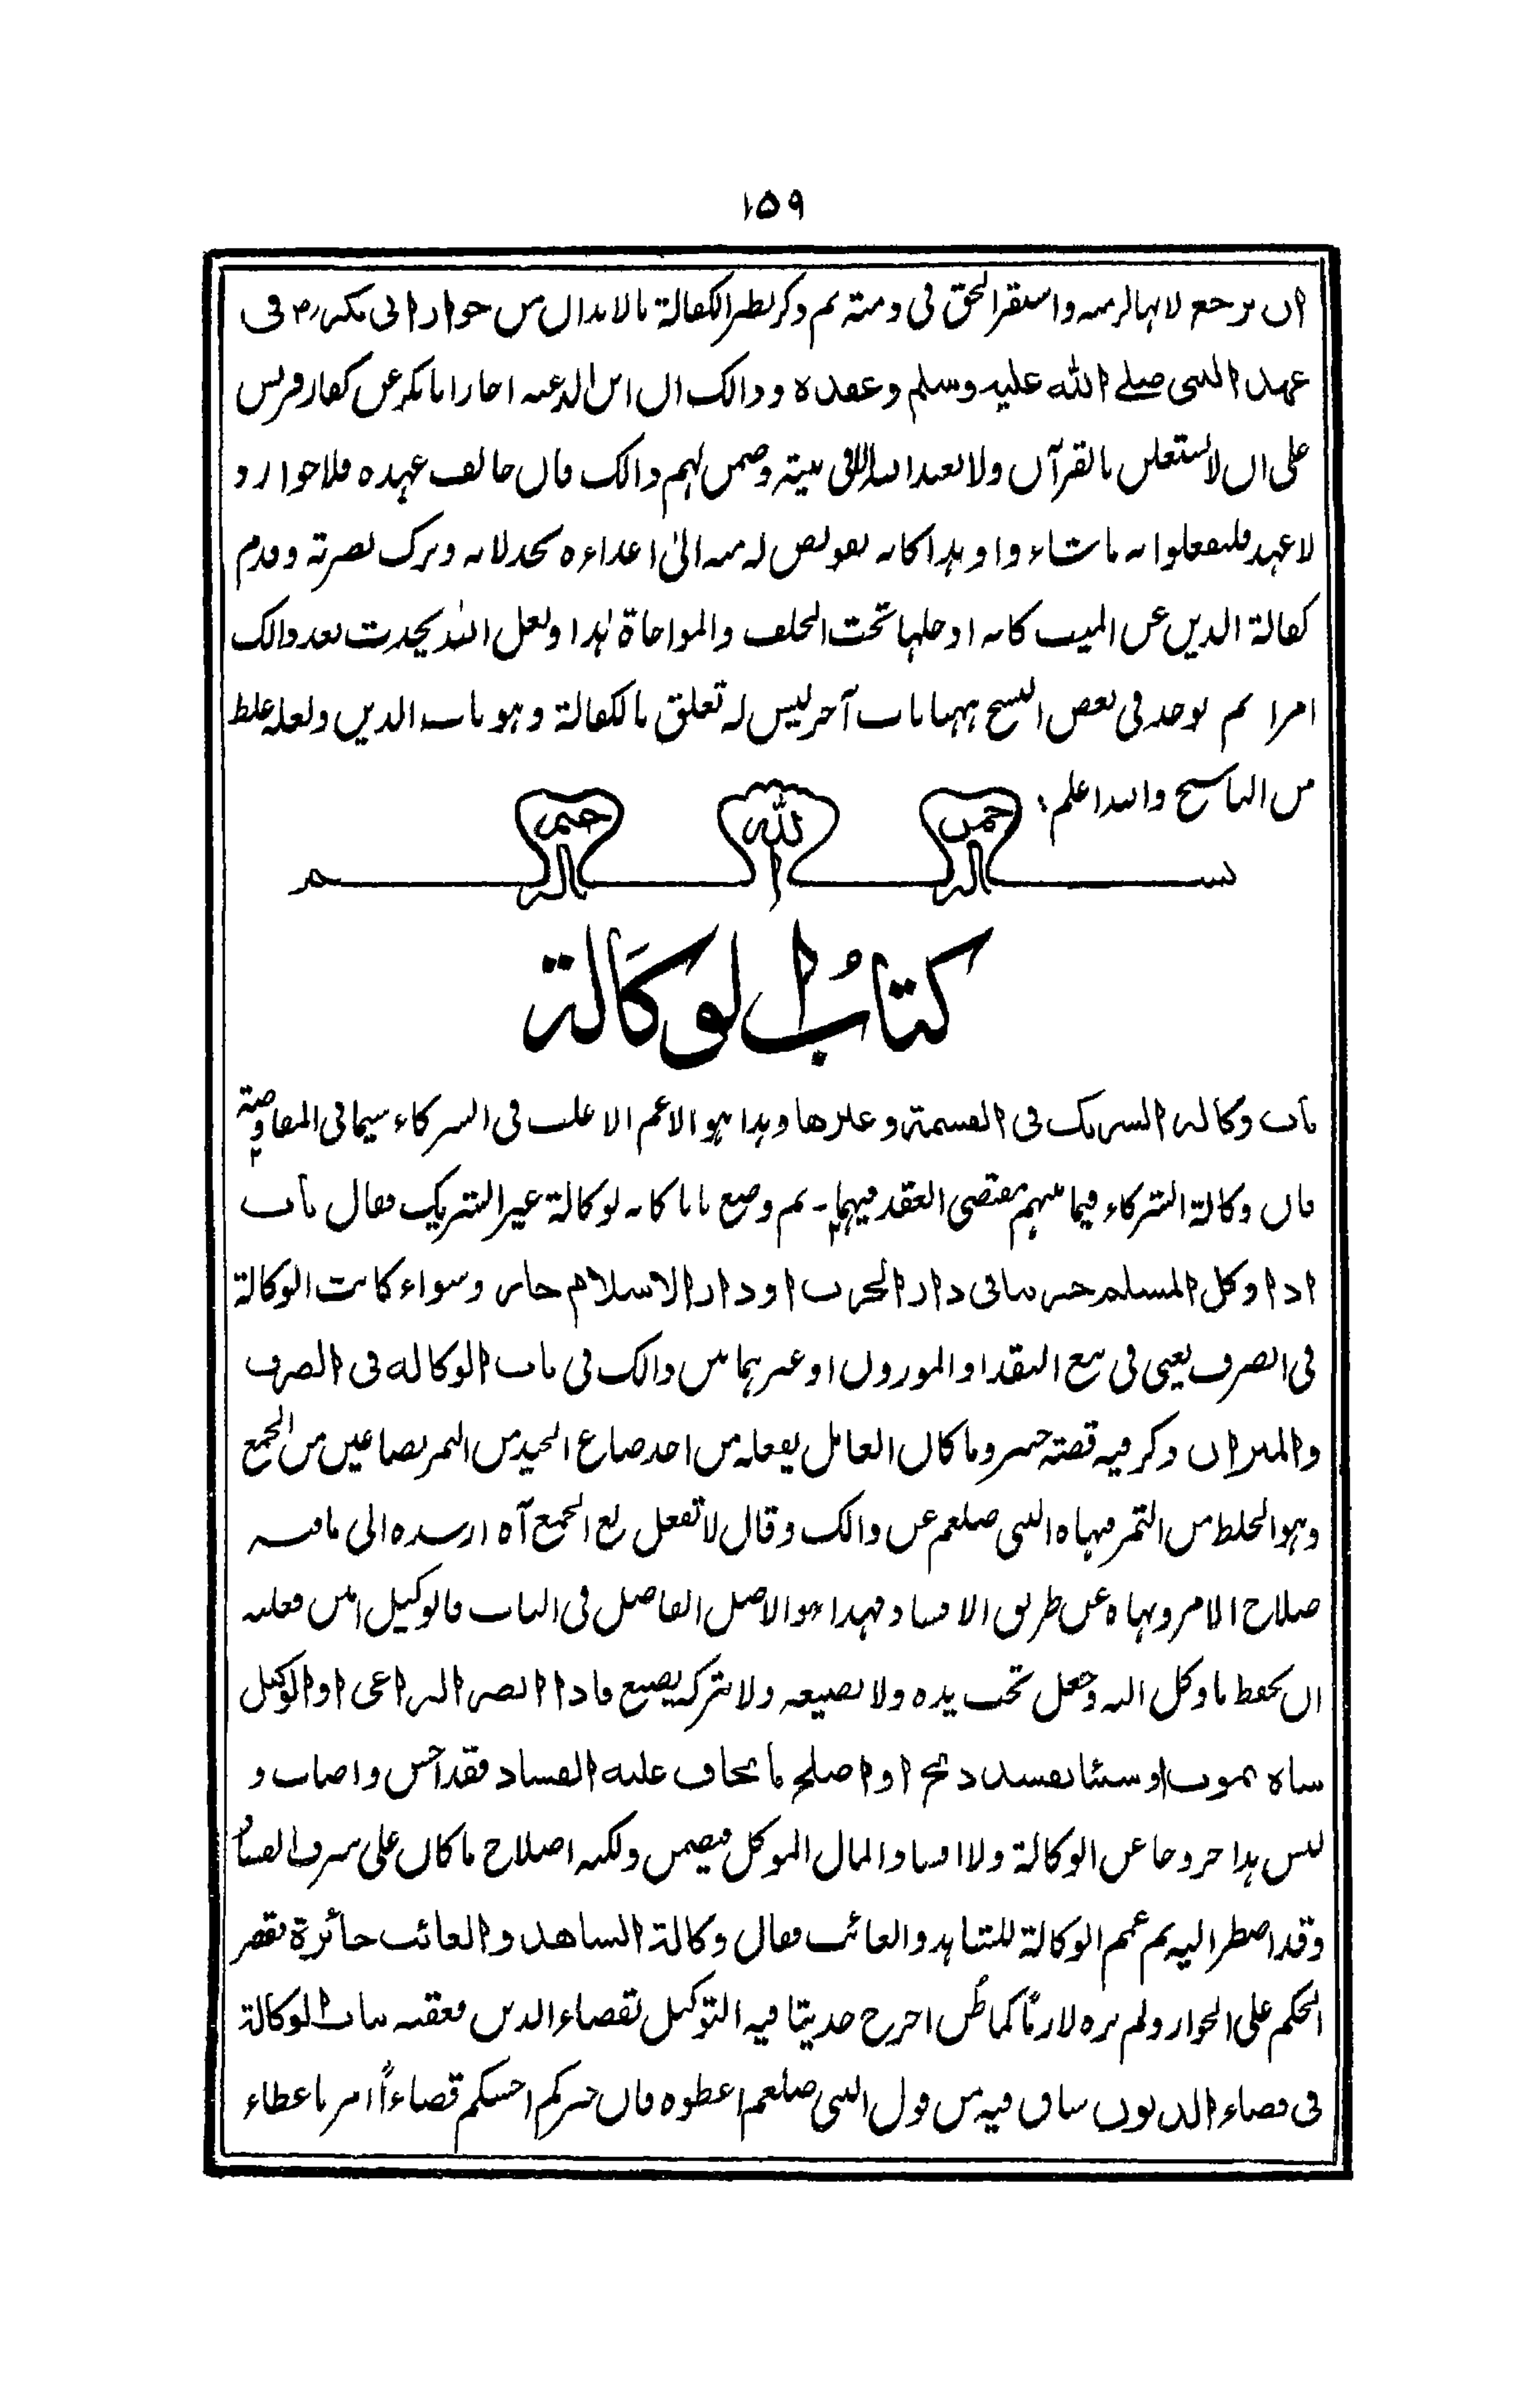 ١٥٩
ان يرجع لانها لزمته واستقر الحق فى ذمته ثم ذكر لطر الكفالة بالابدال من جوار ابى بكر رض فى
عهد النبى صلے الله عليه وسلم وعقده وذالك ان ابن الدغنه اجار ابا بكر عن كفار قريش
على ان لا يستعلن بالقرآن ولا يعبد الله الا فى بيته وضمن لهم ذالك فان خالف عهده فلا جوار و
لا عهد فليفعلوا به ما شاء وا وهذا كانه تفويض له منه الىٰ اعداءه بخذلانه وترك نصرته وقدم
كفالة الدين عن الميت كانه ادخلها تحت الحلف والمواخاة هٰذا ولعل الله يحدث بعد ذالك
امرا ثم يوجد فى بعض النسخ ههنا باب آخر ليس له تعلق بالكفالة وهو باب الدين ولعله غلط
من الناسخ والله اعلم؛
بسم الله الرحمن الرحيم
كتابُ الوكَالة
باب وكالة الشريك فى القسمة وغيرها وهذا هو الاعم الاغلب فى الشركاء سيما فى المفاوضة
فان وكالة الشركاء فيما بينهم مقتضى العقد فيهما۔ ثم وضع بابا كانه لوكالة غير الشريك فقال باب
اذا وكل المسلم حربيا فى دار الحرب او دار الاسلام جاز وسواء كانت الوكالة
فى الصرف يعنى فى بيع النقد او الموزون او غيرهما بين ذالك فى باب الوكالة فى الصرف
والميزان وذكر فيه قصة خيبر وما كان العامل يفعله من اخذ صاع الجيد من التمر بصاعين من الجمع
وهو الخلط من التمر فنهاه النبى صلعم عن ذالك وقال لا تفعل بع الجمع آه ارشده الى ما فيه
صلاح الامر ونهاه عن طريق الافساد فهذا هو الاصل الفاصل فى الباب فالوكيل امين فعليه
ان يحفظ ما وكل اليه وجعل تحت يده ولا يضيعه ولا يتركه يضيع فاذا ابصر الراعى او الوكيل
شاة تموت او شيئا يفسد ذبح او اصلح ما يخاف عليه الفساد فقد احسن واصاب و
ليس هذا خروجا عن الوكالة ولا افسادا لمال الموكل فيضمن ولكنه اصلاح ما كان على شرف الفساد
وقد اضطر اليه ثم عمم الوكالة للشاهد والغائب فقال وكالة الشاهد والغائب جائزة فقصر
الحكم على الجواز ولم يره لازمًا كما ظُن اخرج حديثا فيه التوكيل بقضاء الدين فعقبه بباب الوكالة
فى قضاء الديون ساق فيه من قول النبى صلعم اعطوه فان خيركم احسنكم قضاءاً امر باعطاء